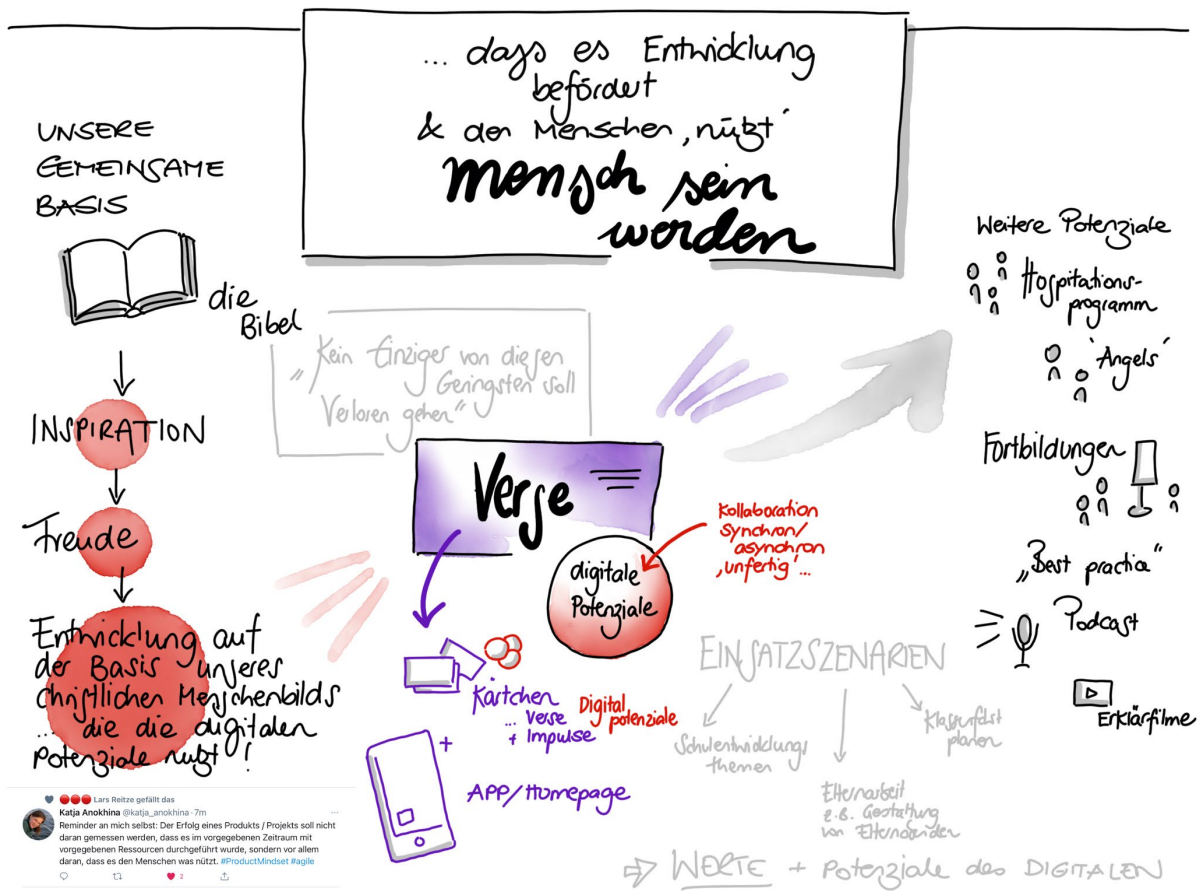 ... dass es Entwicklung
befördert
& den Menschen ‚nützt‘
mensch sein
werden
UNSERE
GEMEINSAME
BASIS
die
Bibel
INSPIRATION
Freude
Entwicklung auf
der Basis unseres
christlichen Menschenbilds
... die die digitalen
Potenziale nutzt !
„Kein Einziger von diesen
Geringsten soll
Verloren gehen“
Verse
digitale
Potenziale
Kollaboration
Synchron/
asynchron
‚unfertig‘...
Kärtchen
... Verse
+ Impulse
Digital
potenziale
+
APP/Homepage
EINSATZSZENARIEN
Schulentwicklungs
themen
Elternarbeit
z.B. Gestaltung
von Elternabenden
Klassenfahrt
planen
⇨ WERTE + Potenziale des DIGITALEN
Weitere Potenziale
Hospitations-
programm
‚Angels‘
Fortbildungen
„Best practice“
Podcast
Erklärfilme
Lars Reitze gefällt das
Katja Anokhina @katja_anokhina · 7m
Reminder an mich selbst: Der Erfolg eines Produkts / Projekts soll nicht
daran gemessen werden, dass es im vorgegebenen Zeitraum mit
vorgegebenen Ressourcen durchgeführt wurde, sondern vor allem
daran, dass es den Menschen was nützt. #ProductMindset #agile
2